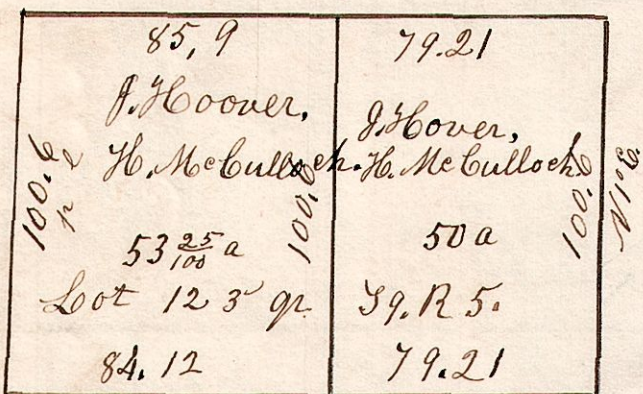 85,9
J. Hoover,
H. McCulloch.
100.6
p l
53 25/100 a
100.6
Lot 12 3 qr.
84.12
79.21
J. Hover,
H. McCulloch.
100.6
50 a
T 9. R 5.
79.21
N 1° E.